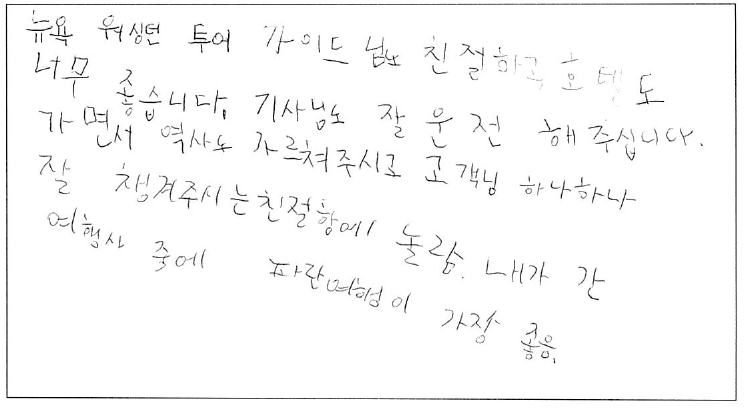 뉴욕 워싱턴 투어 가이드님도 친절하고 호텔도
너무 좋습니다. 기사님도 잘 운전 해주십니다.
가면서 역사도 가르쳐주시고 고객님 하나하나
잘 챙겨주시는 친절함에 놀람. 내가 간
여행사 중에 파란여행이 가장 좋음.